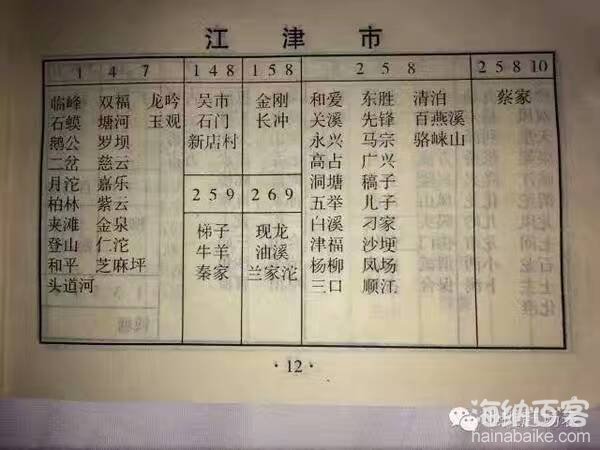 江津市
1 4 7
临峰 双福 龙吟
石蟆 塘河 玉观
鹅公 罗坝
二岔 慈云
月沱 嘉乐
柏林 紫云
夹滩 金泉
登山 仁沱
和平 芝麻坪
头道河
1 4 8
吴市
石门
新店村
1 5 8
金刚
长冲
2 5 9
梯子
牛羊
秦家
2 6 9
现龙
油溪
兰家沱
2 5 8
和爱 东胜 清泊
关溪 先锋 百燕溪
永兴 马宗 骆崃山
高占 广兴
洞塘 稿子
五举 儿子
白溪 刁家
津福 沙埂
杨柳 凤场
三口 顺江
2 5 8 10
蔡家
·12·
海纳百客
hainabaike.com